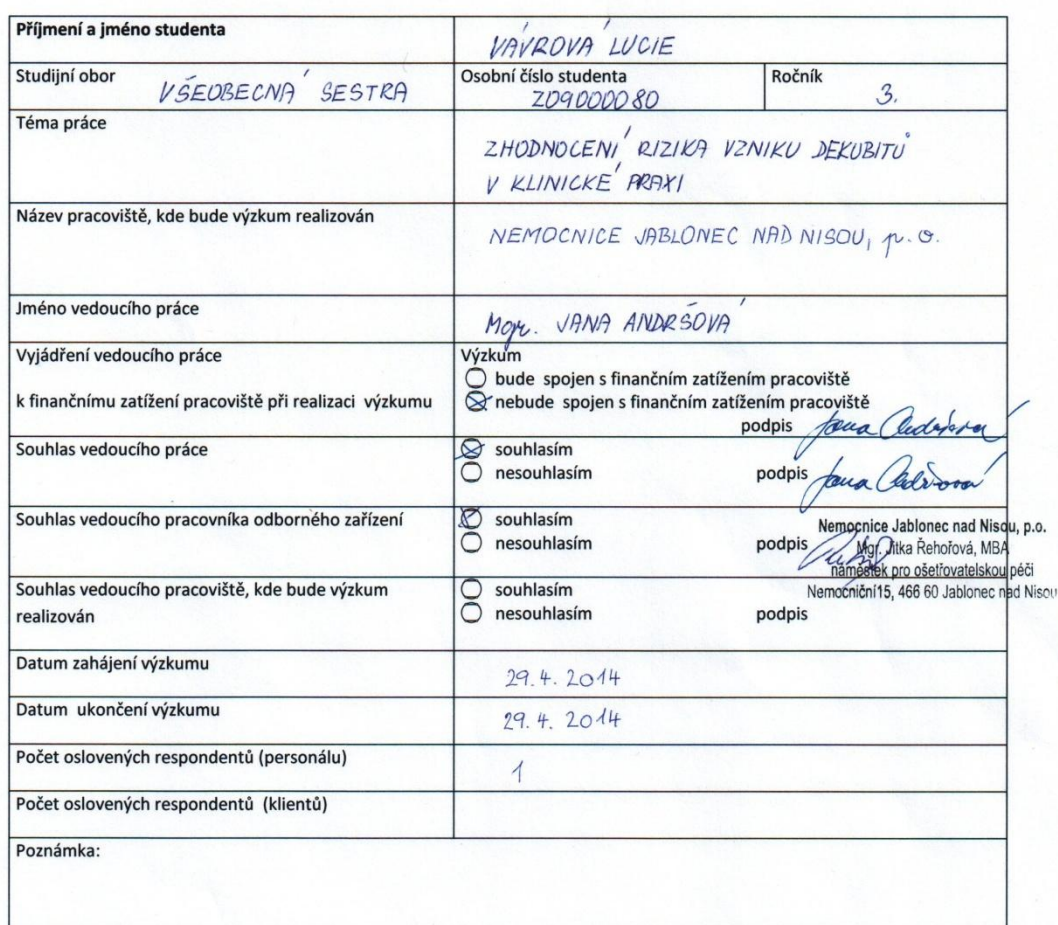 Příjmení a jméno studenta
VÁVROVÁ LUCIE
Studijní obor
VŠEOBECNÁ SESTRA
Osobní číslo studenta
Z09000080
Ročník
3.
Téma práce
ZHODNOCENÍ RIZIKA VZNIKU DEKUBITŮ
V KLINICKÉ PRAXI
Název pracoviště, kde bude výzkum realizován
NEMOCNICE JABLONEC NAD NISOU, p.o.
Jméno vedoucího práce
Mgr. JANA ANDRŠOVÁ
Vyjádření vedoucího práce
k finančnímu zatížení pracoviště při realizaci výzkumu
Výzkum
bude spojen s finančním zatížením pracoviště
nebude spojen s finančním zatížením pracoviště
podpis Jana Andršová
Souhlas vedoucího práce
souhlasím
nesouhlasím
podpis Jana Andršová
Souhlas vedoucího pracovníka odborného zařízení
souhlasím
nesouhlasím
podpis
Nemocnice Jablonec nad Nisou, p.o.
Mgr. Jitka Řehořová, MBA
náměstek pro ošetřovatelskou péči
Nemocniční15, 466 60 Jablonec nad Nisou
Souhlas vedoucího pracoviště, kde bude výzkum
realizován
souhlasím
nesouhlasím
podpis
Datum zahájení výzkumu
29.4.2014
Datum ukončení výzkumu
29.4.2014
Počet oslovených respondentů (personálu)
1
Počet oslovených respondentů (klientů)
Poznámka: